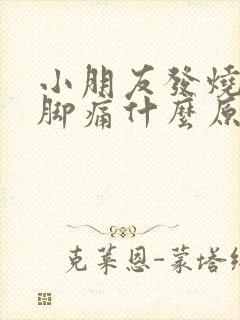 小朋友發燒
腳痛什麼原
克萊恩-蒙塔